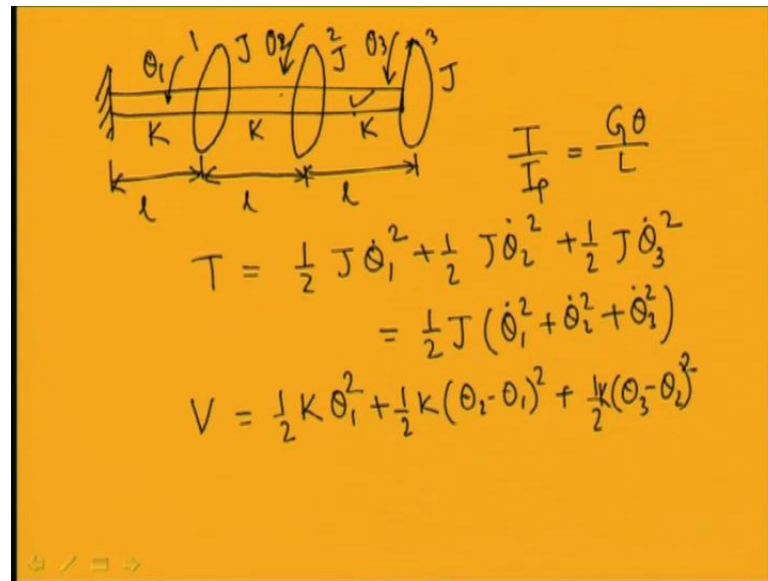 θ₁ 1 J θ₂ 2 J θ₃ 3 J
K K K
l l l
T/I_p = Gθ/L
T = 1/2 J θ̇₁² + 1/2 J θ̇₂² + 1/2 J θ̇₃²
= 1/2 J (θ̇₁² + θ̇₂² + θ̇₃²)
V = 1/2 K θ₁² + 1/2 K (θ₂ - θ₁)² + 1/2 K (θ₃ - θ₂)²